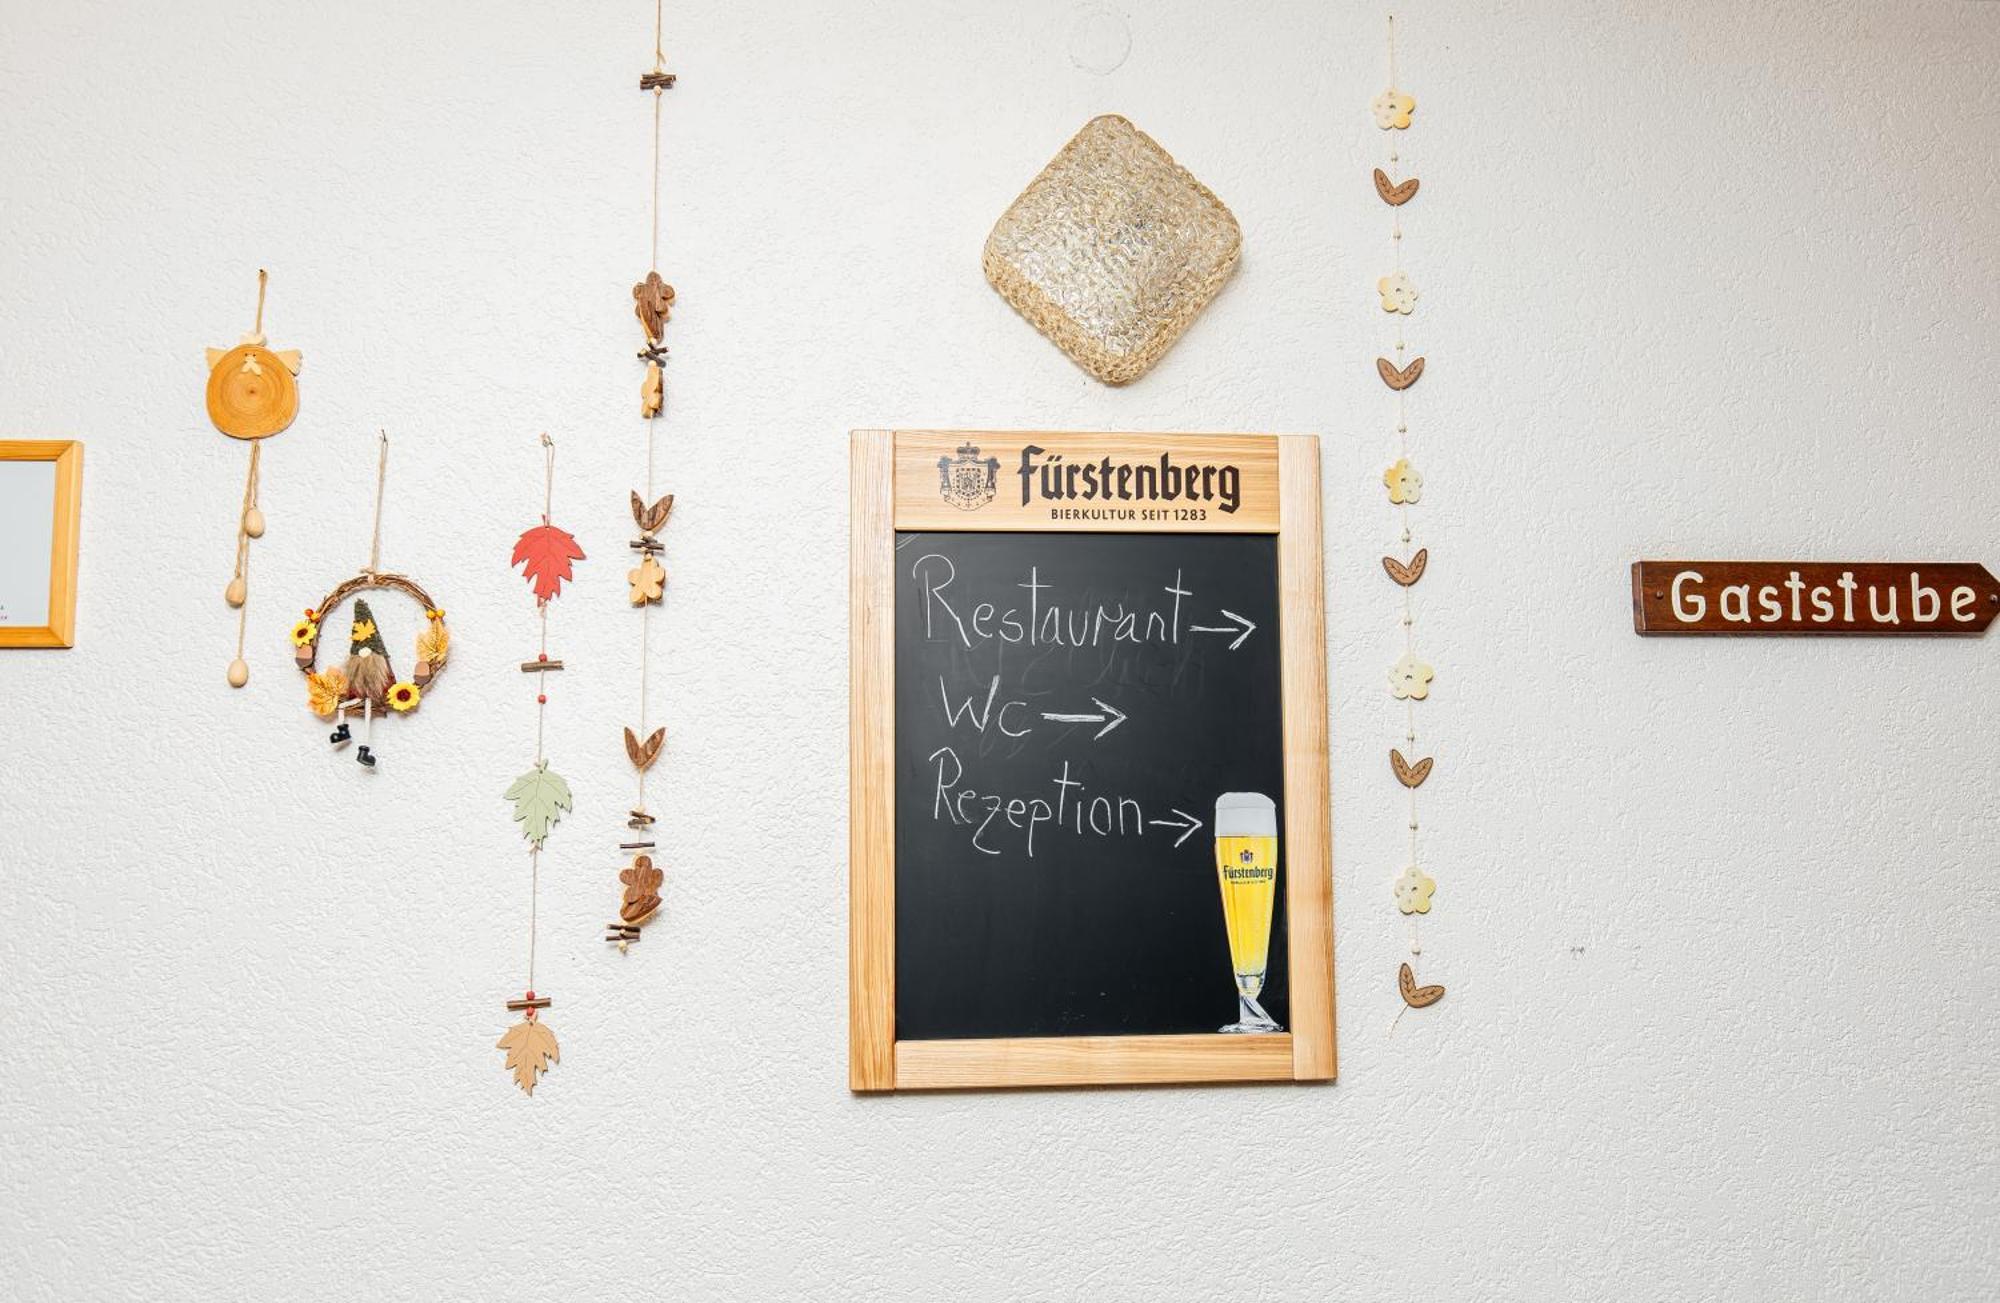 Fürstenberg
BIERKULTUR SEIT 1283
Restaurant →
Wc →
Rezeption →
Fürstenberg
Gaststube